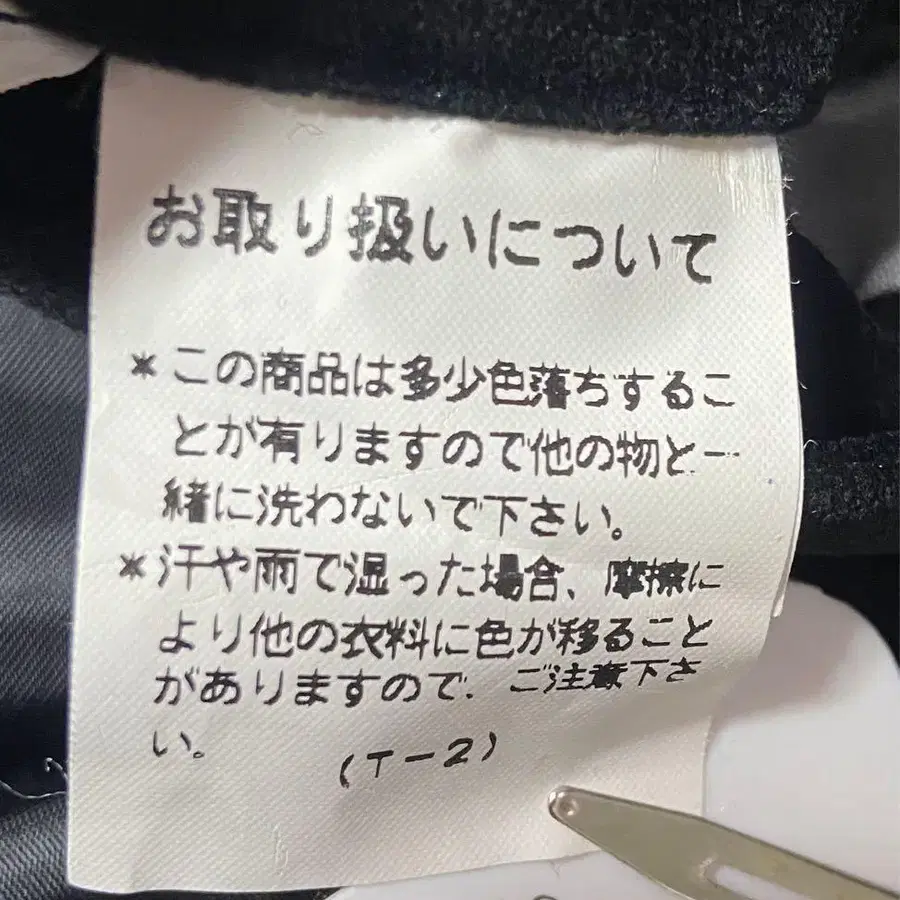 お取り扱いについて
*この商品は多少色落ちするこ
とが有りますので他の物と一
緒に洗わないで下さい。
*汗や雨で湿った場合、摩擦に
より他の衣料に色が移ること
がありますので、ご注意下さ
い。
(T-2)